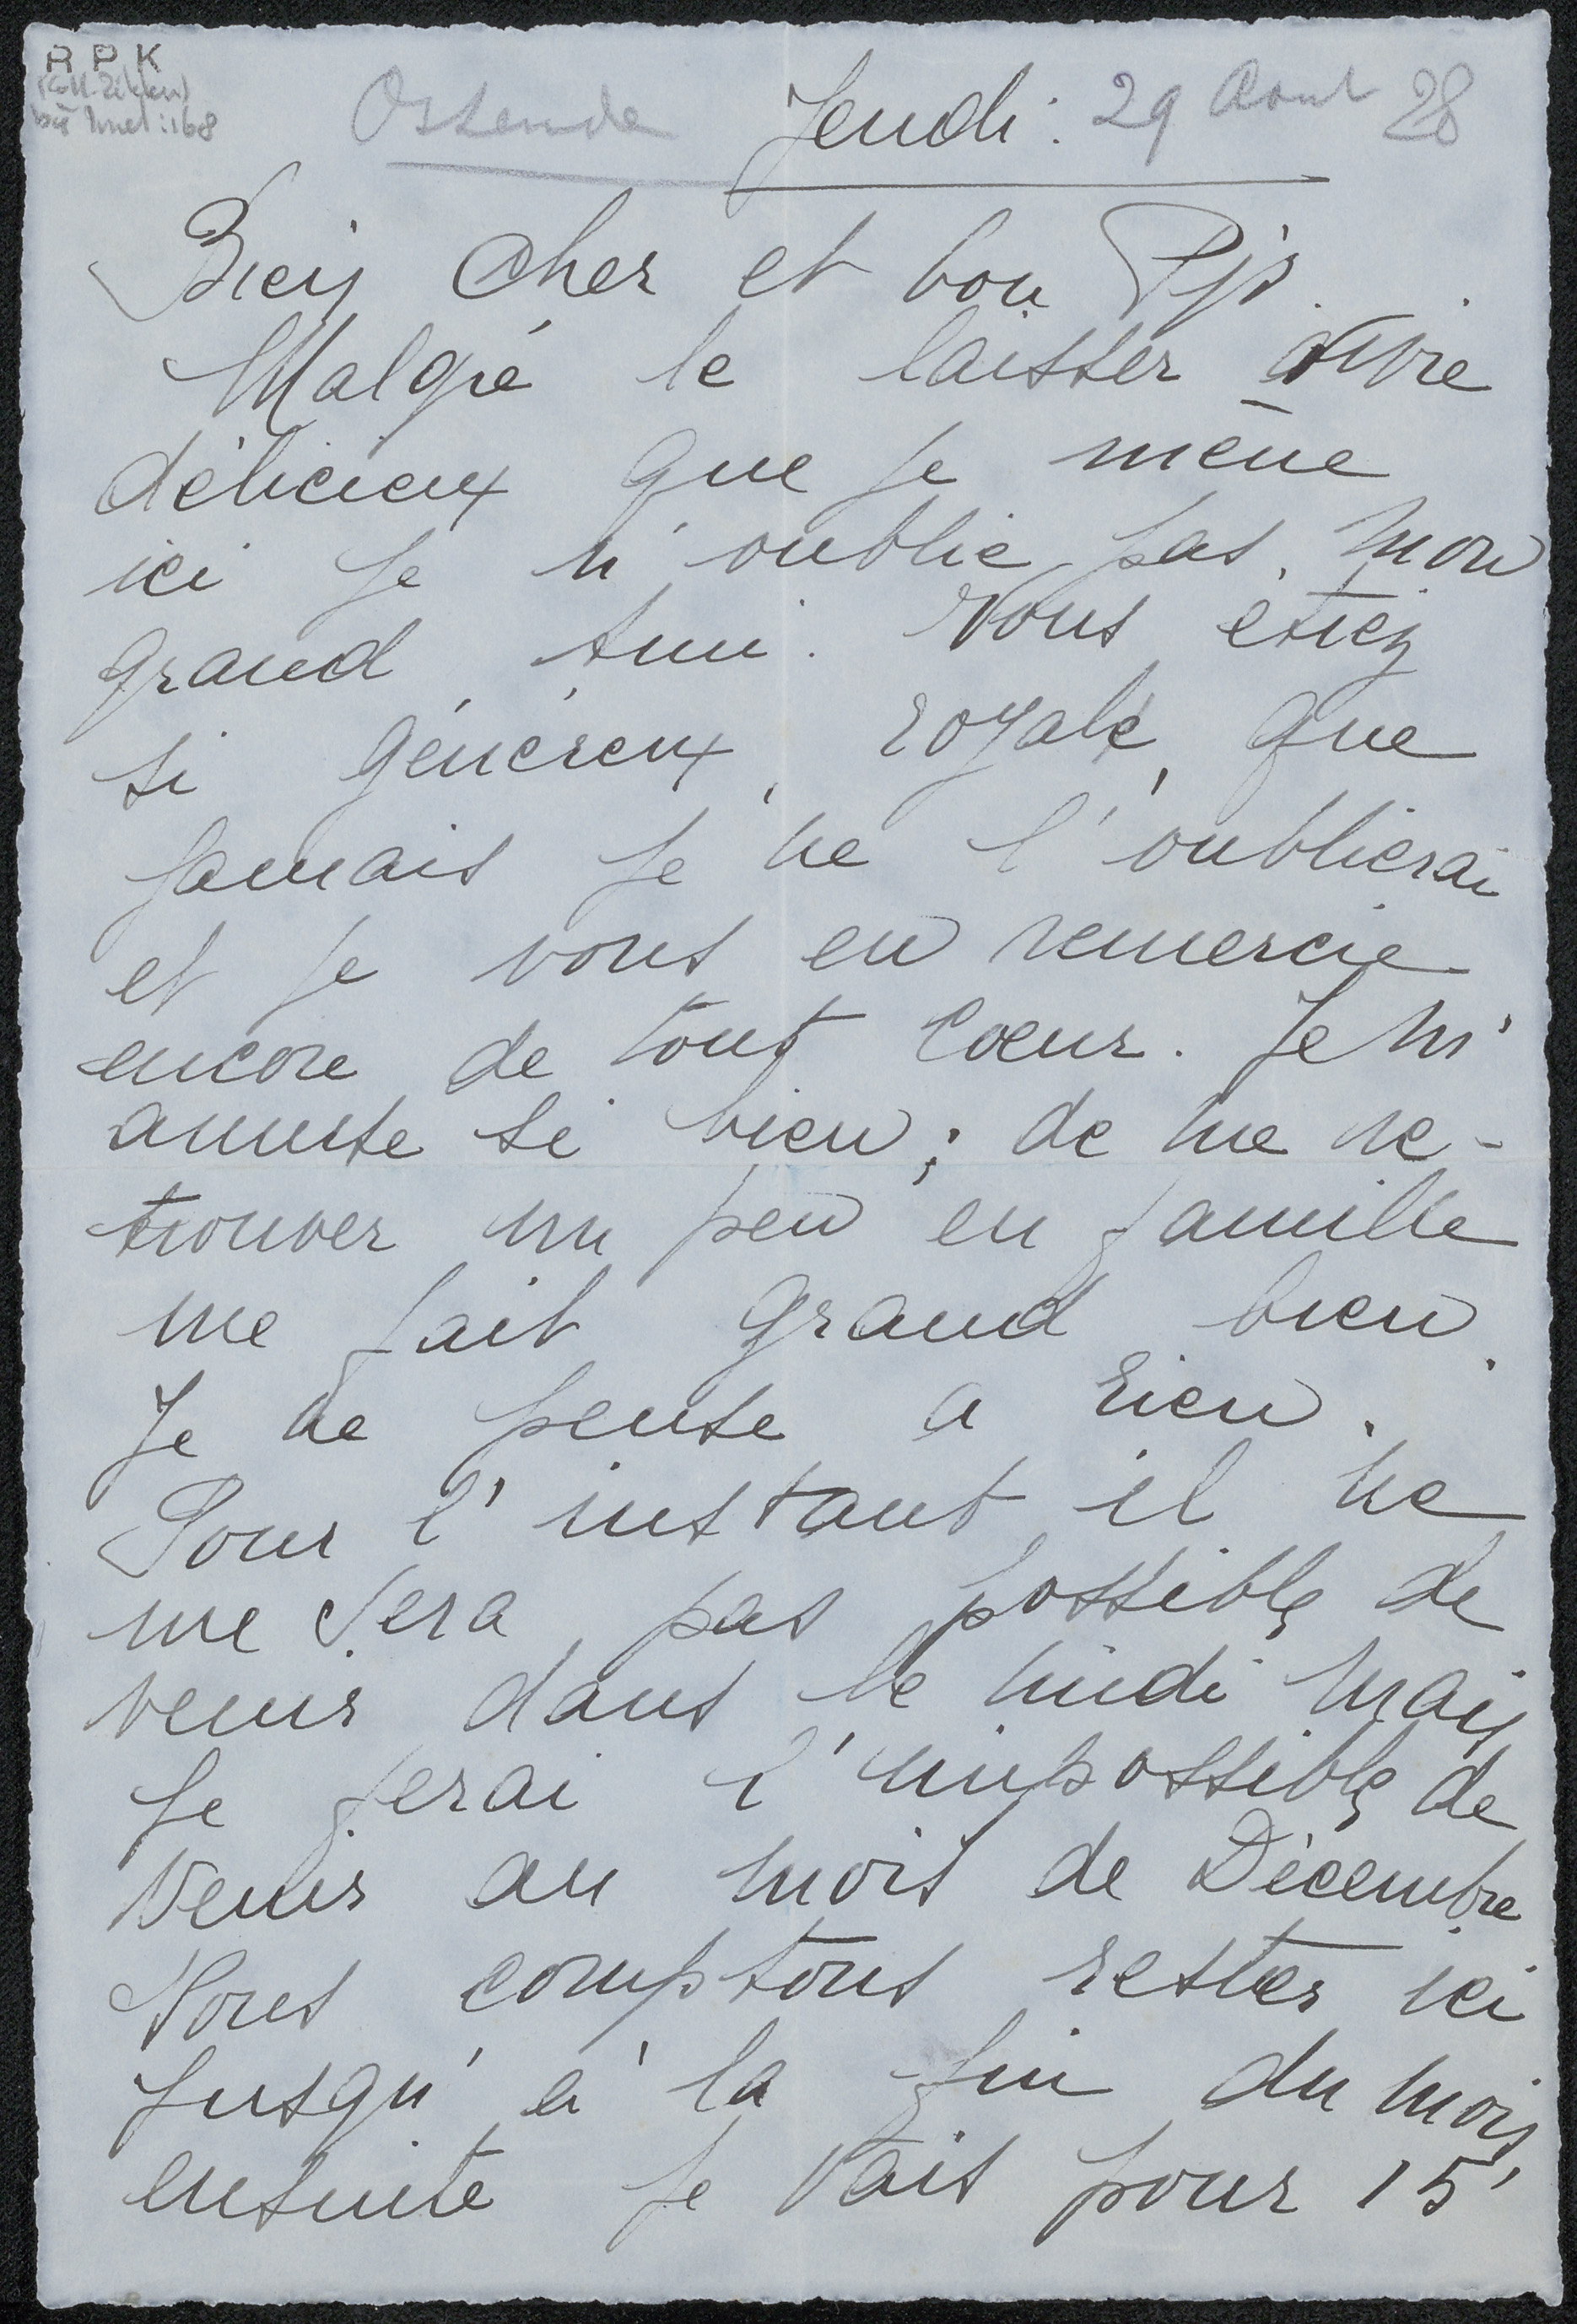 R P K
Ostende Jendi. 29 Aout 28
Bien Cher et bon Pijs.
Malgré le laisser vivre
délicieux que je mène
ici je n'oublie pas, mon
grand Ami. Vous étiez
si généreux, royale, que
jamais je ne l'oublierai
et je vous en remercie
encore de tout Coeur. Je m'
amuse si bien; de me re-
trouver un peu en famille
me fait grand bien.
Je ne pense a rien.
Pour l'instant il ne
me sera pas possible de
venir dans le midi mais
je ferai l'impossible de
venir au mois de Décembre
Nous comptons rester ici
jusqu'à la fin du mois,
ensuite je vais pour 15